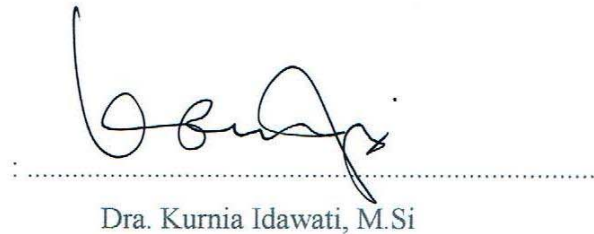 : ........................................................................
Dra. Kurnia Idawati, M.Si